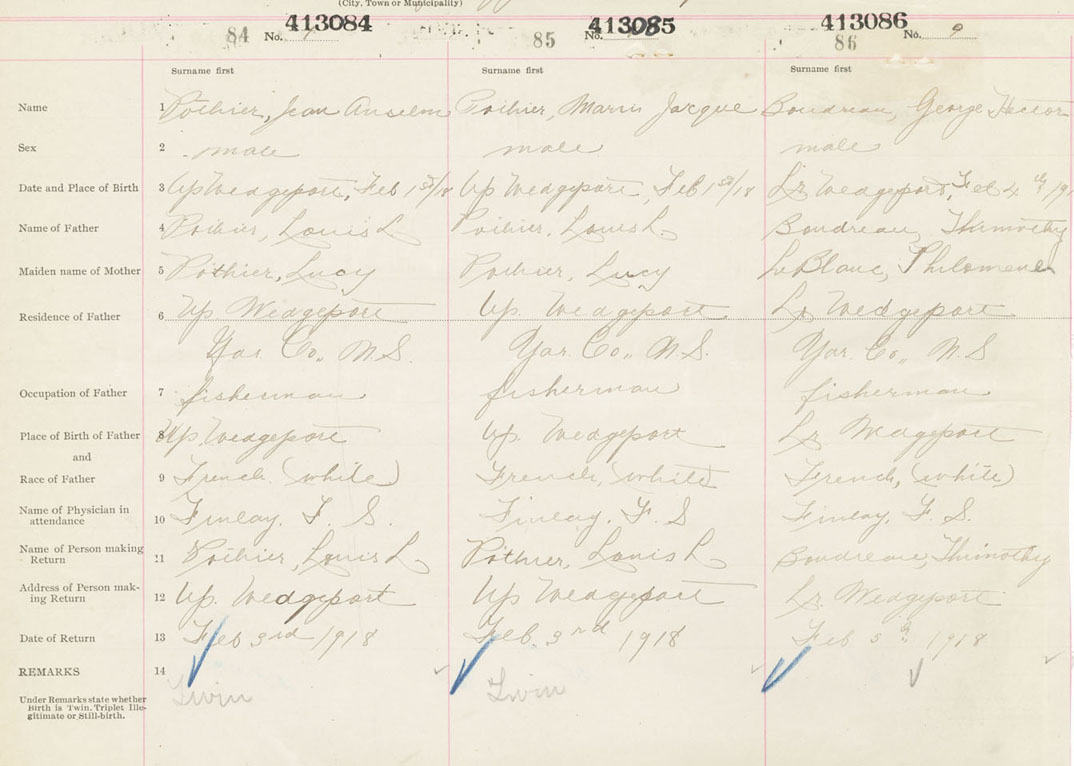 (City, Town or Municipality)
413084 413085 413086
84 No. 7 85 No. 86 No. 9
Surname first Surname first Surname first
Name 1 Pothier, Jean Anselm Pothier, Marin Jacque Boudreau, George Hector
Sex 2 male male male
Date and Place of Birth 3 Up Wedgeport, Feb 1st/18 Up Wedgeport, Feb 1st/18 Lr Wedgeport, Feb 4th 191
Name of Father 4 Pothier, Louis L. Pothier, Louis L. Boudreau, Thimothy
Maiden name of Mother 5 Pothier, Lucy Pothier, Lucy LeBlanc, Philomene
Residence of Father 6 Up Wedgeport Up. Wedgeport Lr Wedgeport
Yar. Co., N.S. Yar. Co., N.S. Yar. Co., N.S
Occupation of Father 7 fisherman fisherman fisherman
Place of Birth of Father 8 Up. Wedgeport Up. Wedgeport Lr. Wedgeport
and
Race of Father 9 French (white) French, (white) French, (white)
Name of Physician in
attendance 10 Finlay, F. S. Finlay, F. S Finlay, F. S.
Name of Person making
Return 11 Pothier, Louis L. Pothier, Louis L. Boudreau, Thimothy
Address of Person mak-
ing Return 12 Up. Wedgeport Up Wedgeport Lr. Wedgeport
Date of Return 13 Feb 3rd 1918 Feb. 3rd 1918 Feb 5th 1918
REMARKS 14
Twin Twin
Under Remarks state whether
Birth is Twin, Triplet Ille-
gitimate or Still-birth.